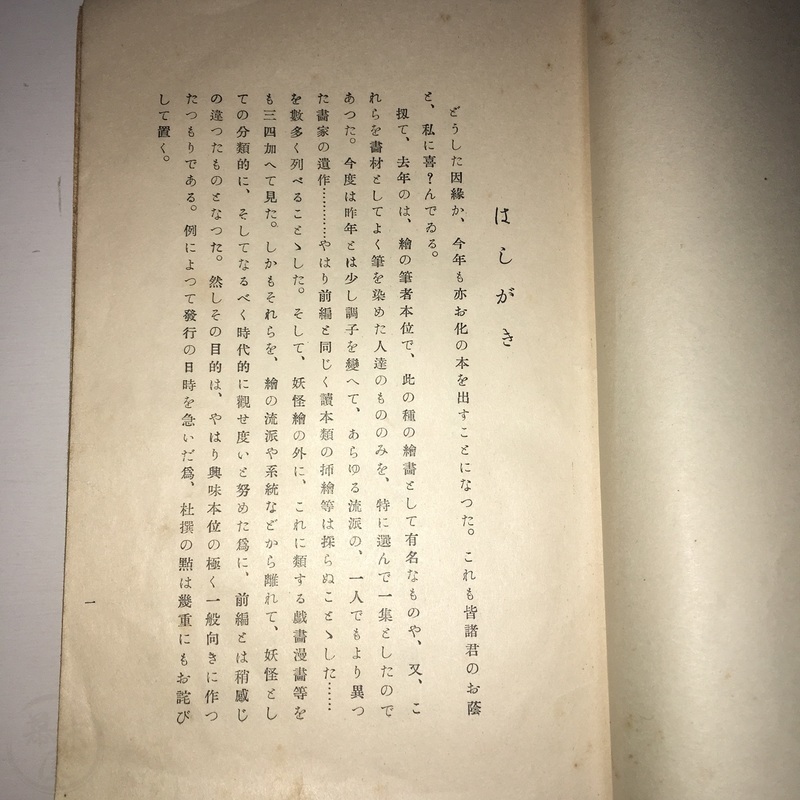 はしがき
どうした因緣か、今年も亦お化の本を出すことになつた。これも皆諸君のお蔭
と、私に喜?んでゐる。
扨て、去年のは、繪の筆者本位で、此の種の繪畫として有名なものや、又、こ
れらを畫材としてよく筆を染めた人達のもののみを、特に選んで一集としたので
あつた。今度は昨年とは少し調子を變へて、あらゆる流派の、一人でもより異つ
た畫家の遺作…………やはり前編と同じく讀本類の揷繪等は採らぬことゝした……
を數多く列べることゝした。そして、妖怪繪の外に、これに類する戲畫漫畫等を
も三四加へて見た。しかもそれらを、繪の流派や系統などから離れて、妖怪とし
ての分類的に、そしてなるべく時代的に觀せ度いと努めた爲に、前編とは稍感じ
の違つたものとなつた。然しその目的は、やはり興味本位の極く一般向きに作つ
たつもりである。例によつて發行の日時を急いだ爲、杜撰の點は幾重にもお詫び
して置く。
一